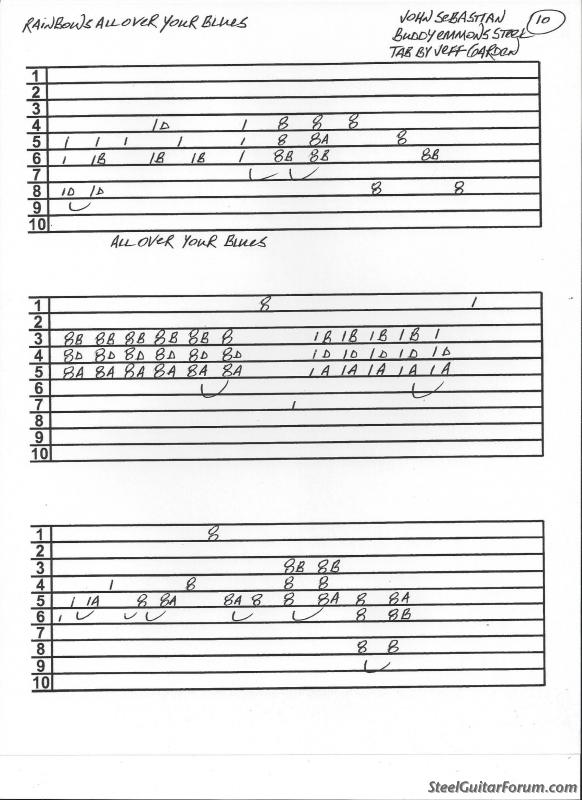 RAINBOWS ALL OVER YOUR BLUES
JOHN SEBASTIAN
BUDDY EMMONS STEEL
TAB BY JEFF GARDEN
10
1
2
3
4 1D 1 8 8 8
5 1 1 1 1 1 8 8A 8
6 1 1B 1B 1B 1 8B 8B 8B
7
8 1D 1D 8 8
9
10
ALL OVER YOUR BLUES
1 8 1
2
3 8B 8B 8B 8B 8B 8 1B 1B 1B 1B 1
4 8D 8D 8D 8D 8D 8D 1D 1D 1D 1D 1D
5 8A 8A 8A 8A 8A 8A 1A 1A 1A 1A 1A
6
7 1
8
9
10
1 8
2
3 8B 8B
4 1 8 8 8
5 1 1A 8 8A 8A 8 8 8A 8 8A
6 1 8 8B
7
8 8 8
9
10
SteelGuitarForum.com